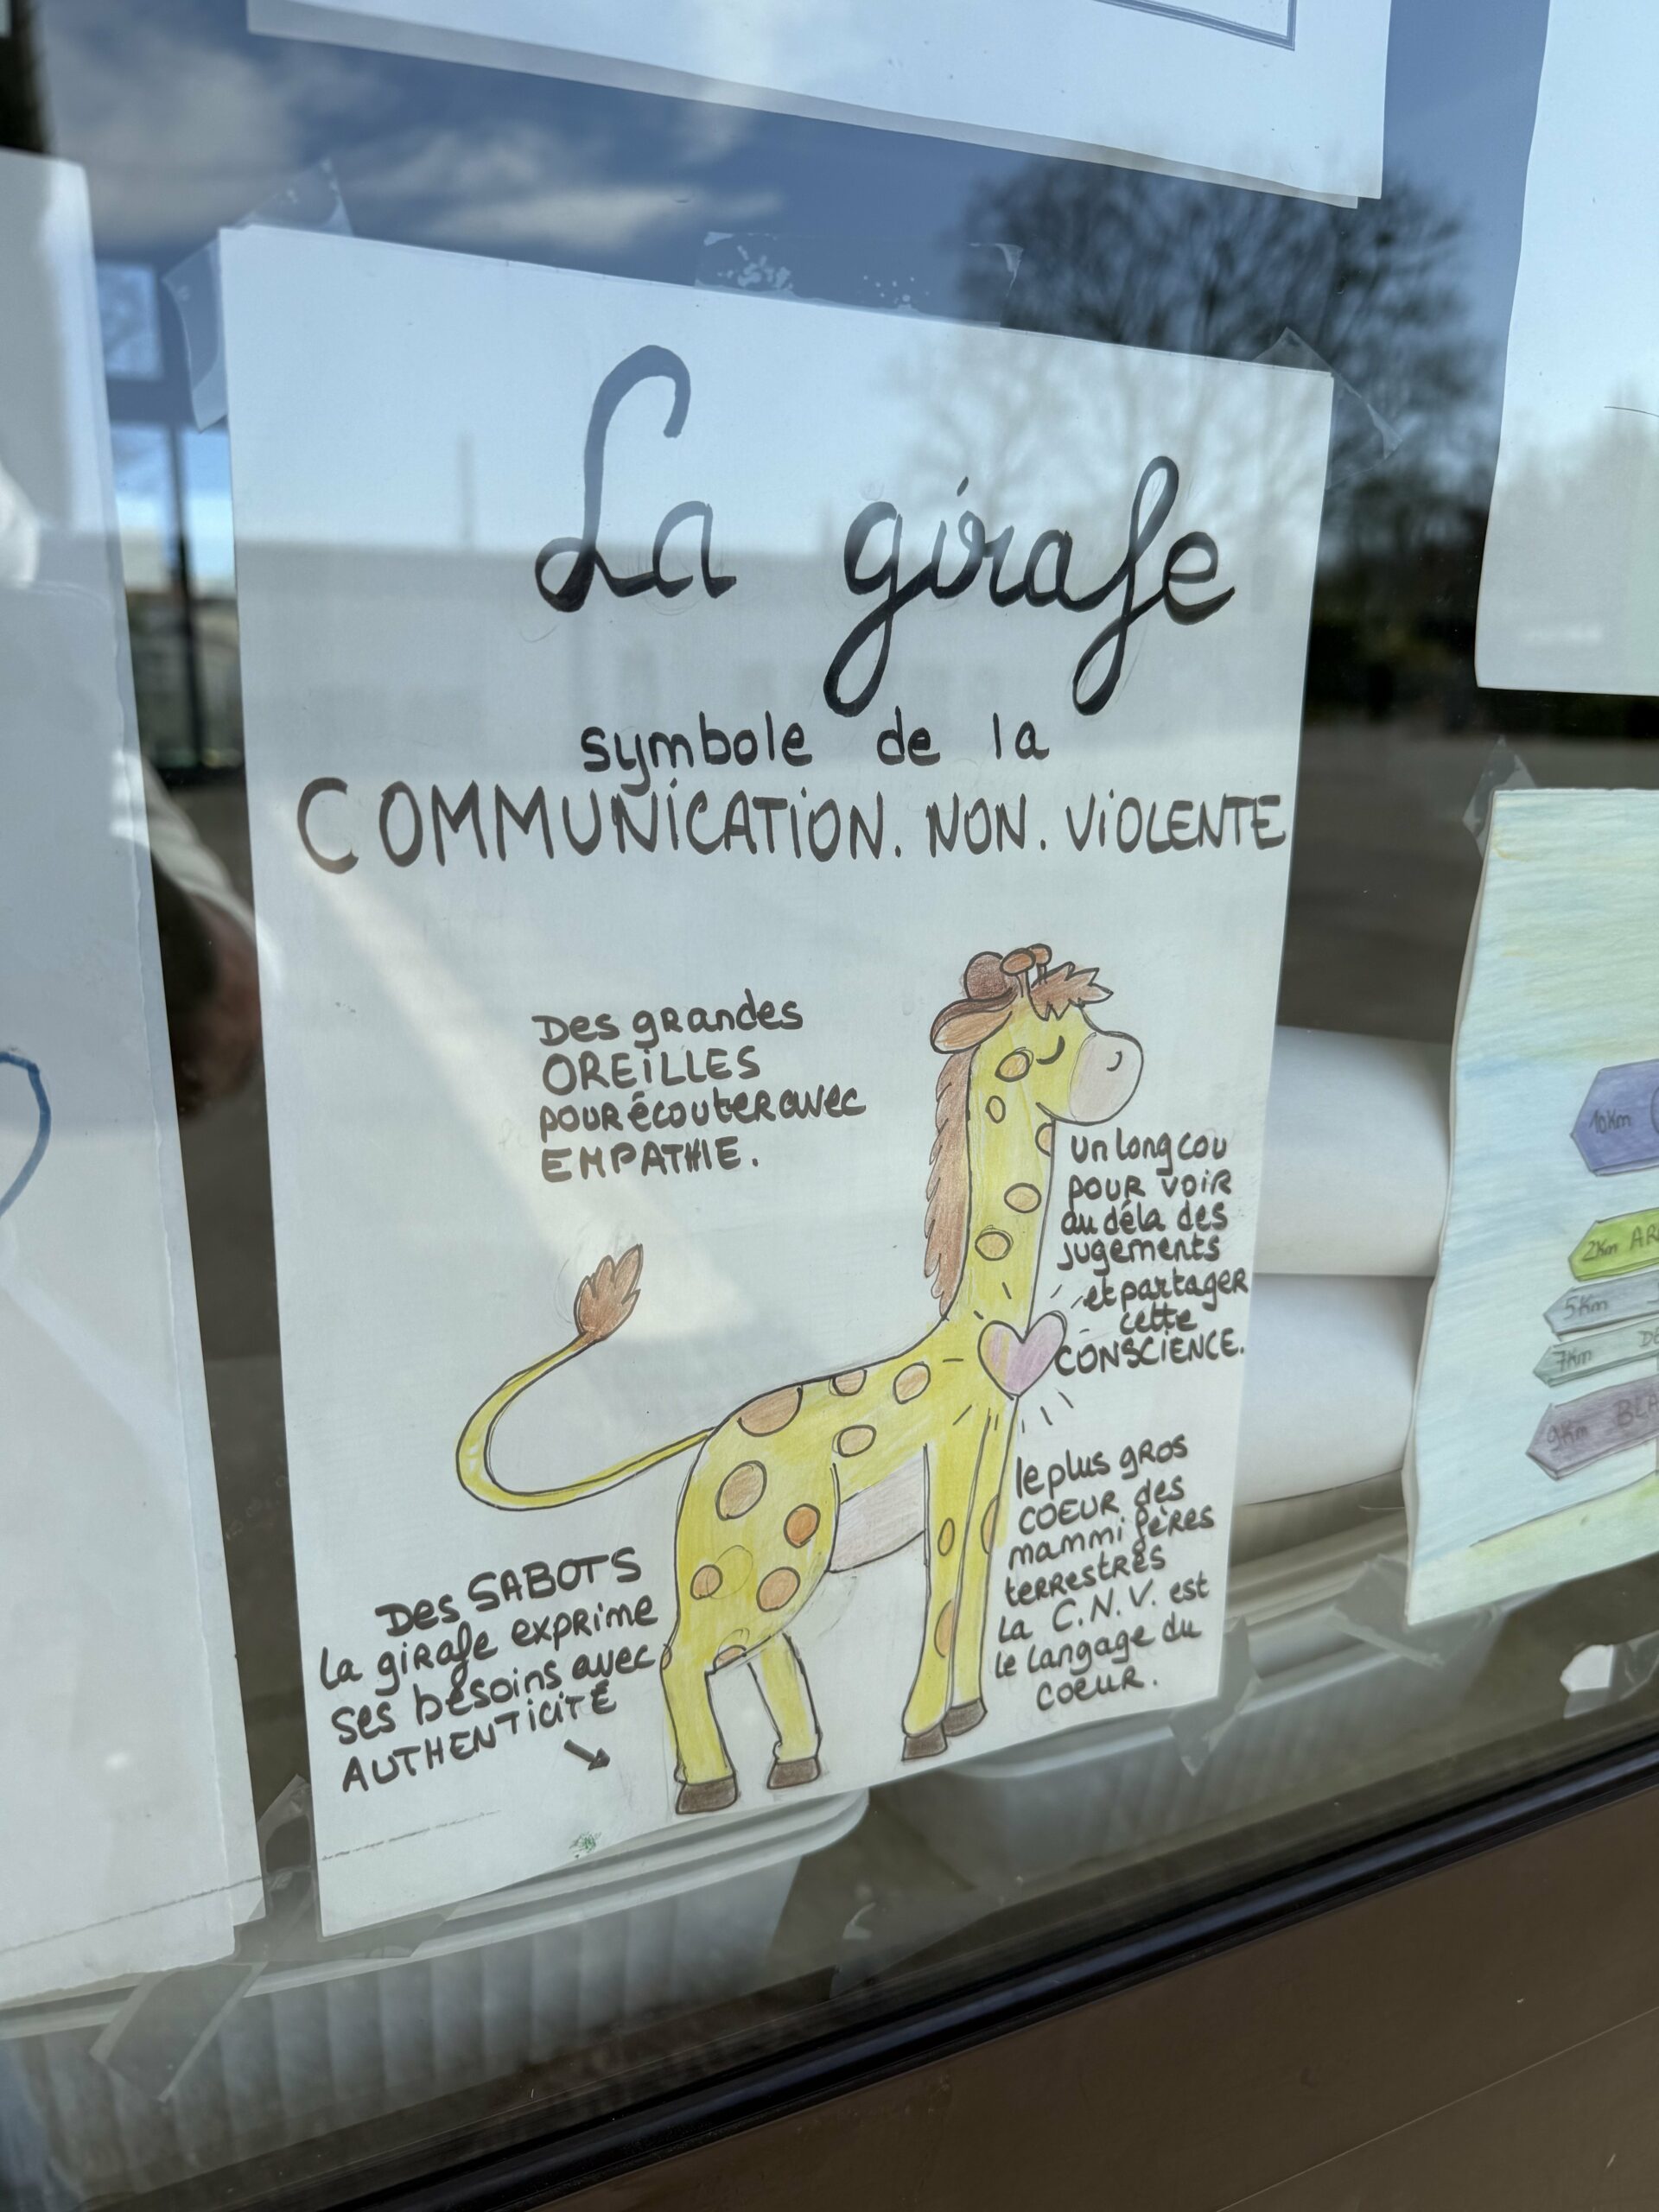 La girafe
symbole de la
COMMUNiCATiON. NON. ViOLENTE
Des grandes
OREiLLES
pour écouter avec
EMPATHIE.
un long cou
pour voir
au déla des
jugements
et partager
cette
CONSCIENCE.
le plus gros
COEUR des
mammifères
terrestres
La C.N.V. est
le langage du
coeur.
Des SABOTS
La girafe exprime
ses besoins avec
AUTHENTiCiTÉ
10Km
2Km AR
5Km
7Km DE
9Km BLA